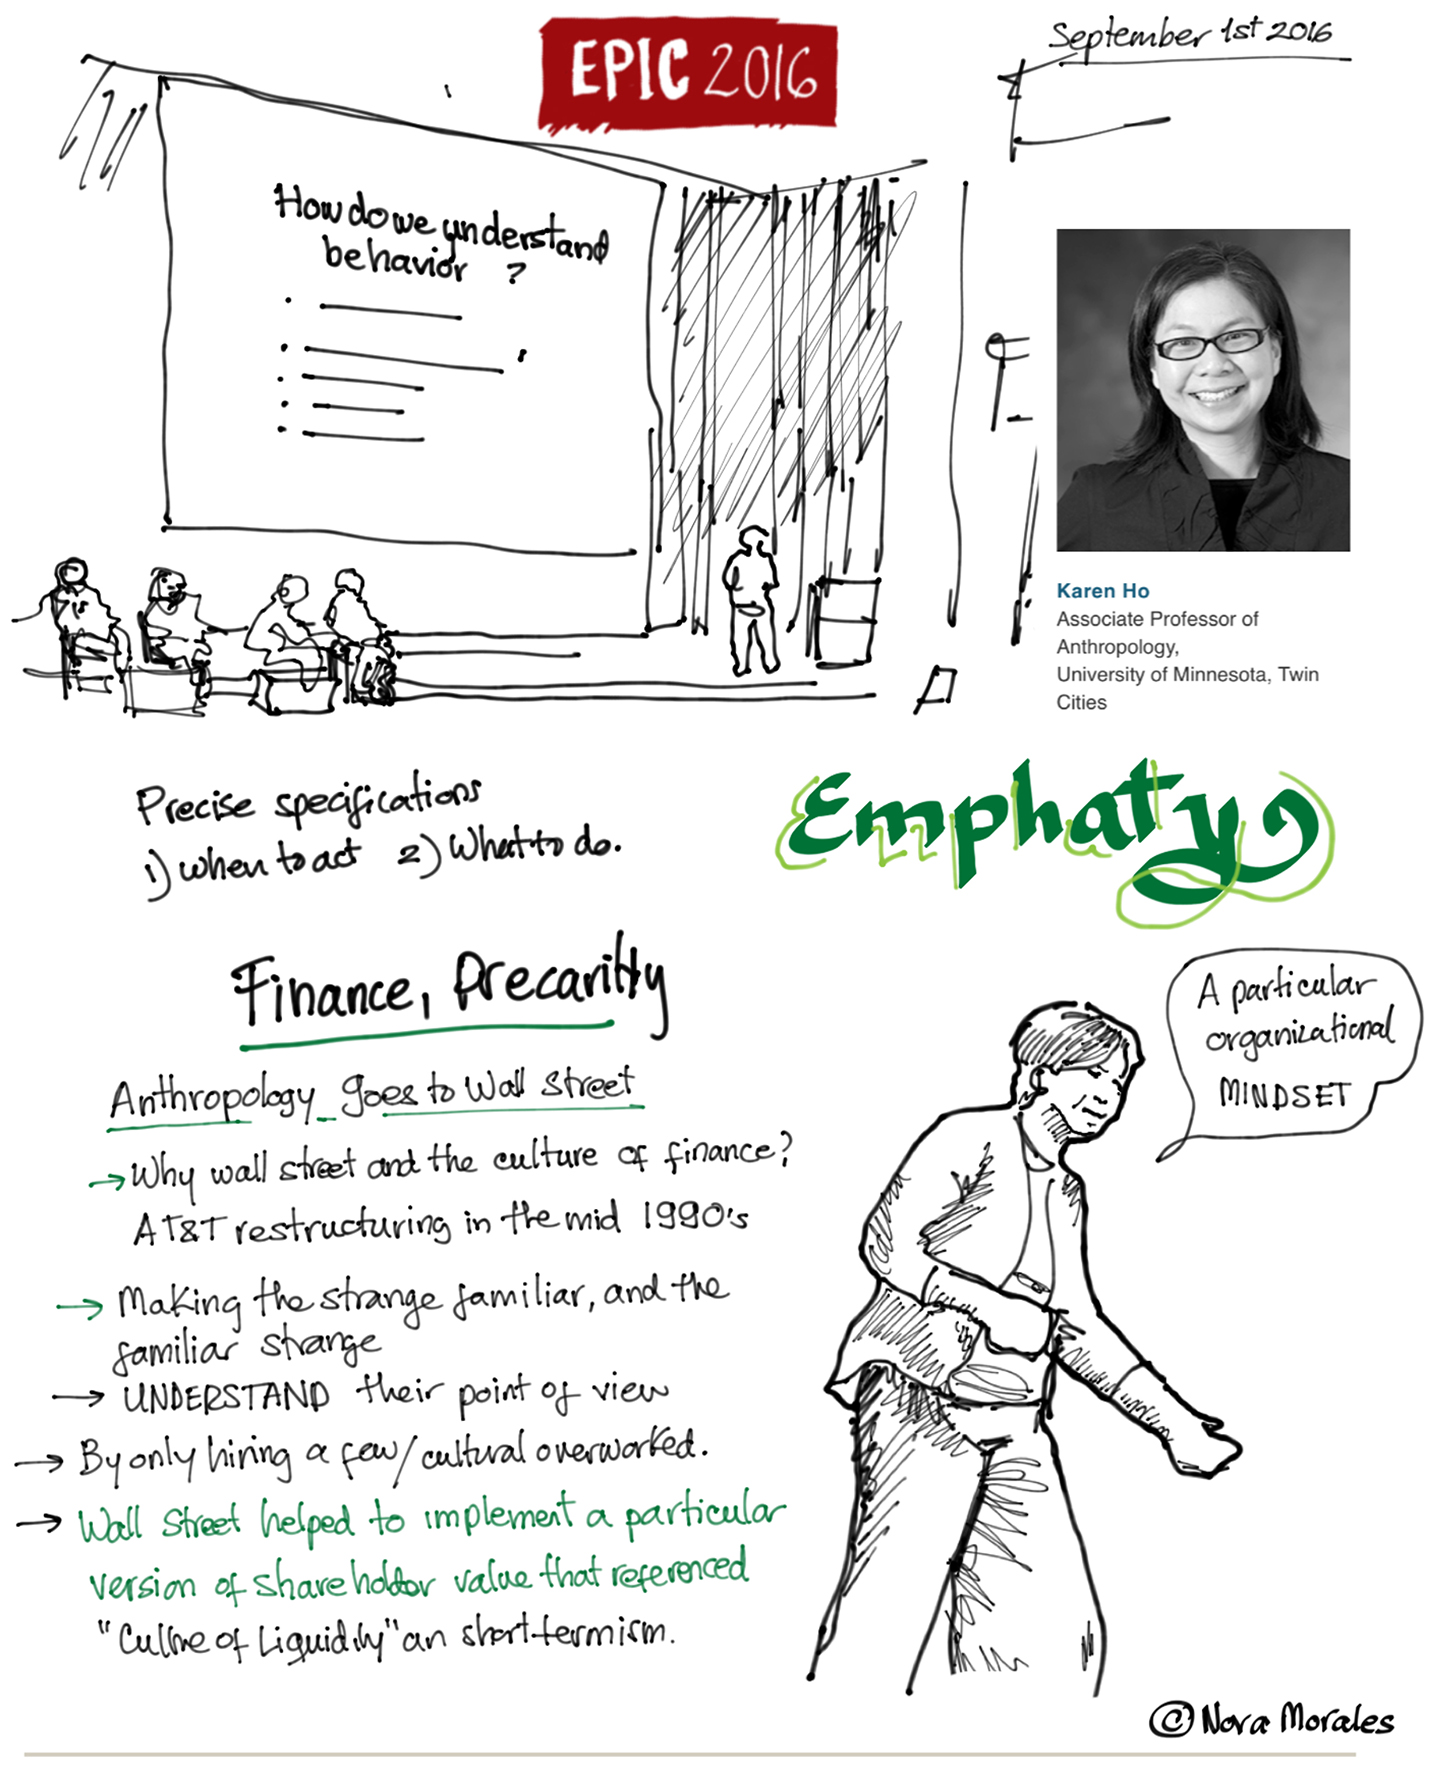 EPIC 2016
September 1st 2016
How do we understand
behavior ?
Karen Ho
Associate Professor of
Anthropology,
University of Minnesota, Twin
Cities
Precise specifications
1) when to act 2) What to do.
Emphaty
Finance, Precaritty
Anthropology goes to Wall Street
→ Why wall street and the culture of finance?
AT&T restructuring in the mid 1990's
→ Making the strange familiar, and the
familiar strange
→ UNDERSTAND their point of view
→ By only hiring a few/cultural overworked.
→ Wall Street helped to implement a particular
version of shareholder value that referenced
"Culture of Liquidity" an short-termism.
A particular
organizational
MINDSET
© Nora Morales